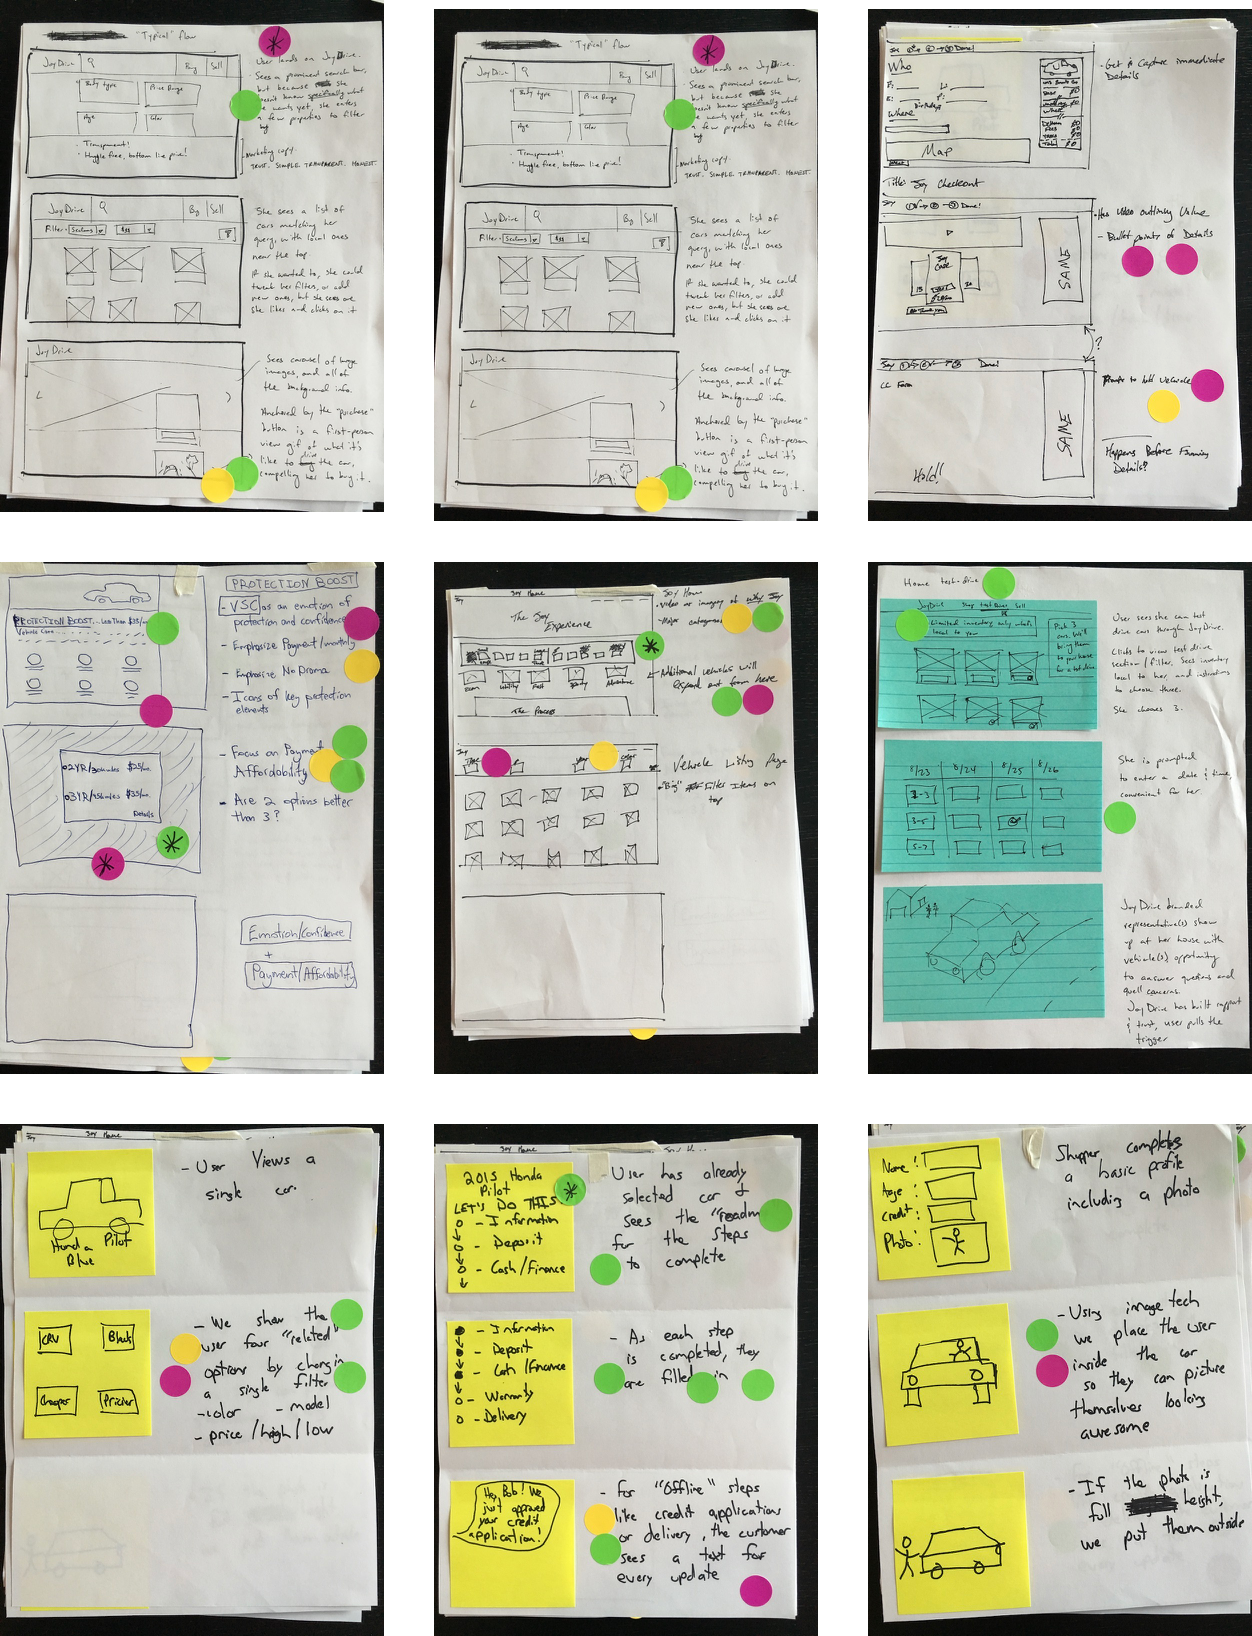 "Typical" flow
JoyDrive Q Buy Sell
Body type Price Range
Age Color
- Transparent!
- Hassle free, bottom line price!
User lands on JoyDrive.
Sees a prominent search bar,
but because she
doesn't know specifically what
she wants yet, she enters
a few properties to filter
by
Marketing copy.
TRUST. SIMPLE. TRANSPARENT. HONEST
JoyDrive Q Buy Sell
Filter: Sedans
She sees a list of
cars matching her
query, with local ones
near the top.
If she wanted to, she could
tweak her filters, or add
new ones, but she sees one
she likes and clicks on it
JoyDrive
Sees carousel of large
images, and all of
the background info.
Anchored by the "purchase"
button is a first-person
view gif of what it's
like to drive the car,
compelling her to buy it.
"Typical" flow
JoyDrive Q Buy Sell
Body type Price Range
Age Color
- Transparent!
- Hassle free, bottom line price!
User lands on JoyDrive.
Sees a prominent search bar,
but because she
doesn't know specifically what
she wants yet, she enters
a few properties to filter
by
Marketing copy.
TRUST. SIMPLE. TRANSPARENT. HONEST
JoyDrive Q Buy Sell
Filter: Sedans
She sees a list of
cars matching her
query, with local ones
near the top.
If she wanted to, she could
tweak her filters, or add
new ones, but she sees one
she likes and clicks on it
JoyDrive
Sees carousel of large
images, and all of
the background info.
Anchored by the "purchase"
button is a first-person
view gif of what it's
like to drive the car,
compelling her to buy it.
Joy 1 → 2 → 3 Done!
Who
F: L:
E: P:
Birthday
Where
Map
- Get & Capture immediate
Details
Title: Joy Checkout
Joy Done!
SAME
- Has video outlining Value
- Bullet points of Details
?
Joy Done!
CC Form
SAME
Hold!
Points to hold vehicle
Happens Before Financing
Details?
PROTECTION BOOST... Less Than $35/mo
Vehicle Care...
PROTECTION BOOST
- VSC as an emotion of
protection and confidence
- Emphasize Payment/monthly
- Emphasize No Drama
- Icons of key protection
elements
02YR/30k miles $25/mo.
03YR/45k miles $35/mo.
Details
- Focus on Payment
Affordability
- Are 2 options better
than 3?
Emotion/Confidence
+
Payment/Affordability
Joy
The Joy
Experience
Utility Fast Adventure
The Process
Joy Home
- Video or imagery of why Joy
- Major categories
Additional vehicles will
expand out from here
Joy
Vehicle Listing Page
"Big" Filter Items on
top
Home test-drive
JoyDrive Shop Test Drive Sell
Limited inventory only what's
local to you
Pick 3
cars. We'll
bring them
to you
for a test drive
User sees she can test
drive cars through JoyDrive.
Clicks to view test drive
section/filter. Sees inventory
local to her, and instructions
to choose three.
She chooses 3.
8/23 8/24 8/25 8/26
1-3
3-5
5-7
She is prompted
to enter a date & time
convenient for her
JoyDrive branded
representative(s) show
up at her house with
vehicle(s) opportunity
to answer questions and
quell concerns.
JoyDrive has built rapport
& trust, user pulls the
trigger
Joy Home
Honda Pilot
Blue
- User Views a
single car.
CRV Black
Cheaper Pricier
- We show the
user four "related"
options by changing
a single filter
- color - model
- price/high/low
Joy Home
2015 Honda
Pilot
LET'S DO THIS
- Information
- Deposit
- Cash/Finance
- User has already
selected car &
sees the "roadmap"
for the steps
to complete
- Information
- Deposit
- Cash/Finance
- Warranty
- Delivery
- As each step
is completed, they
are filled in
Hey, Bob! We
just approved
your credit
application!
- For "Offline" steps
like credit applications
or delivery, the customer
sees a text for
every update
Name:
Age:
Credit:
Photo:
Shopper completes
a basic profile
including a photo
- Using image tech
we place the user
inside the car
so they can picture
themselves looking
awesome
- If the photo is
full height,
we put them outside